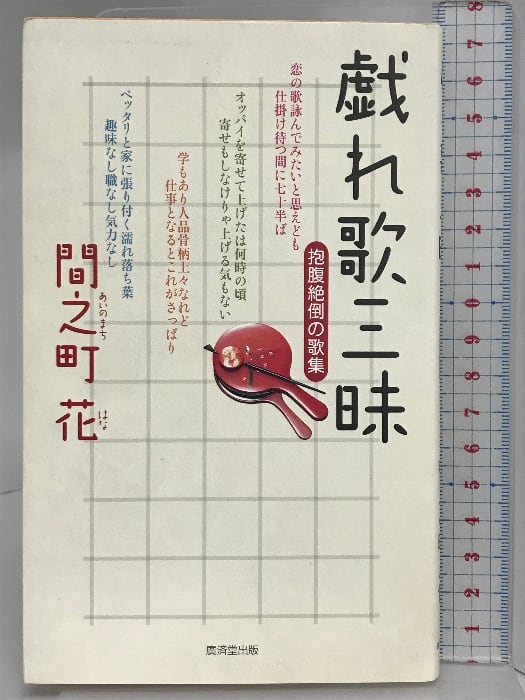 戯れ歌三昧
抱腹絶倒の歌集
恋の歌詠んでみたいと思えども
仕掛け待つ間に七十半ば
オッパイを寄せて上げたは何時の頃
寄せもしなけりゃ上げる気もない
学もあり人品骨柄上々なれど
仕事となるとこれがさっぱり
ベッタリと家に張り付く濡れ落ち葉
趣味なし職なし気力なし
間之町 花
あいのまち はな
廣済堂出版
8
7
6
5
4
3
2
1
0
9
8
7
6
5
4
3
2